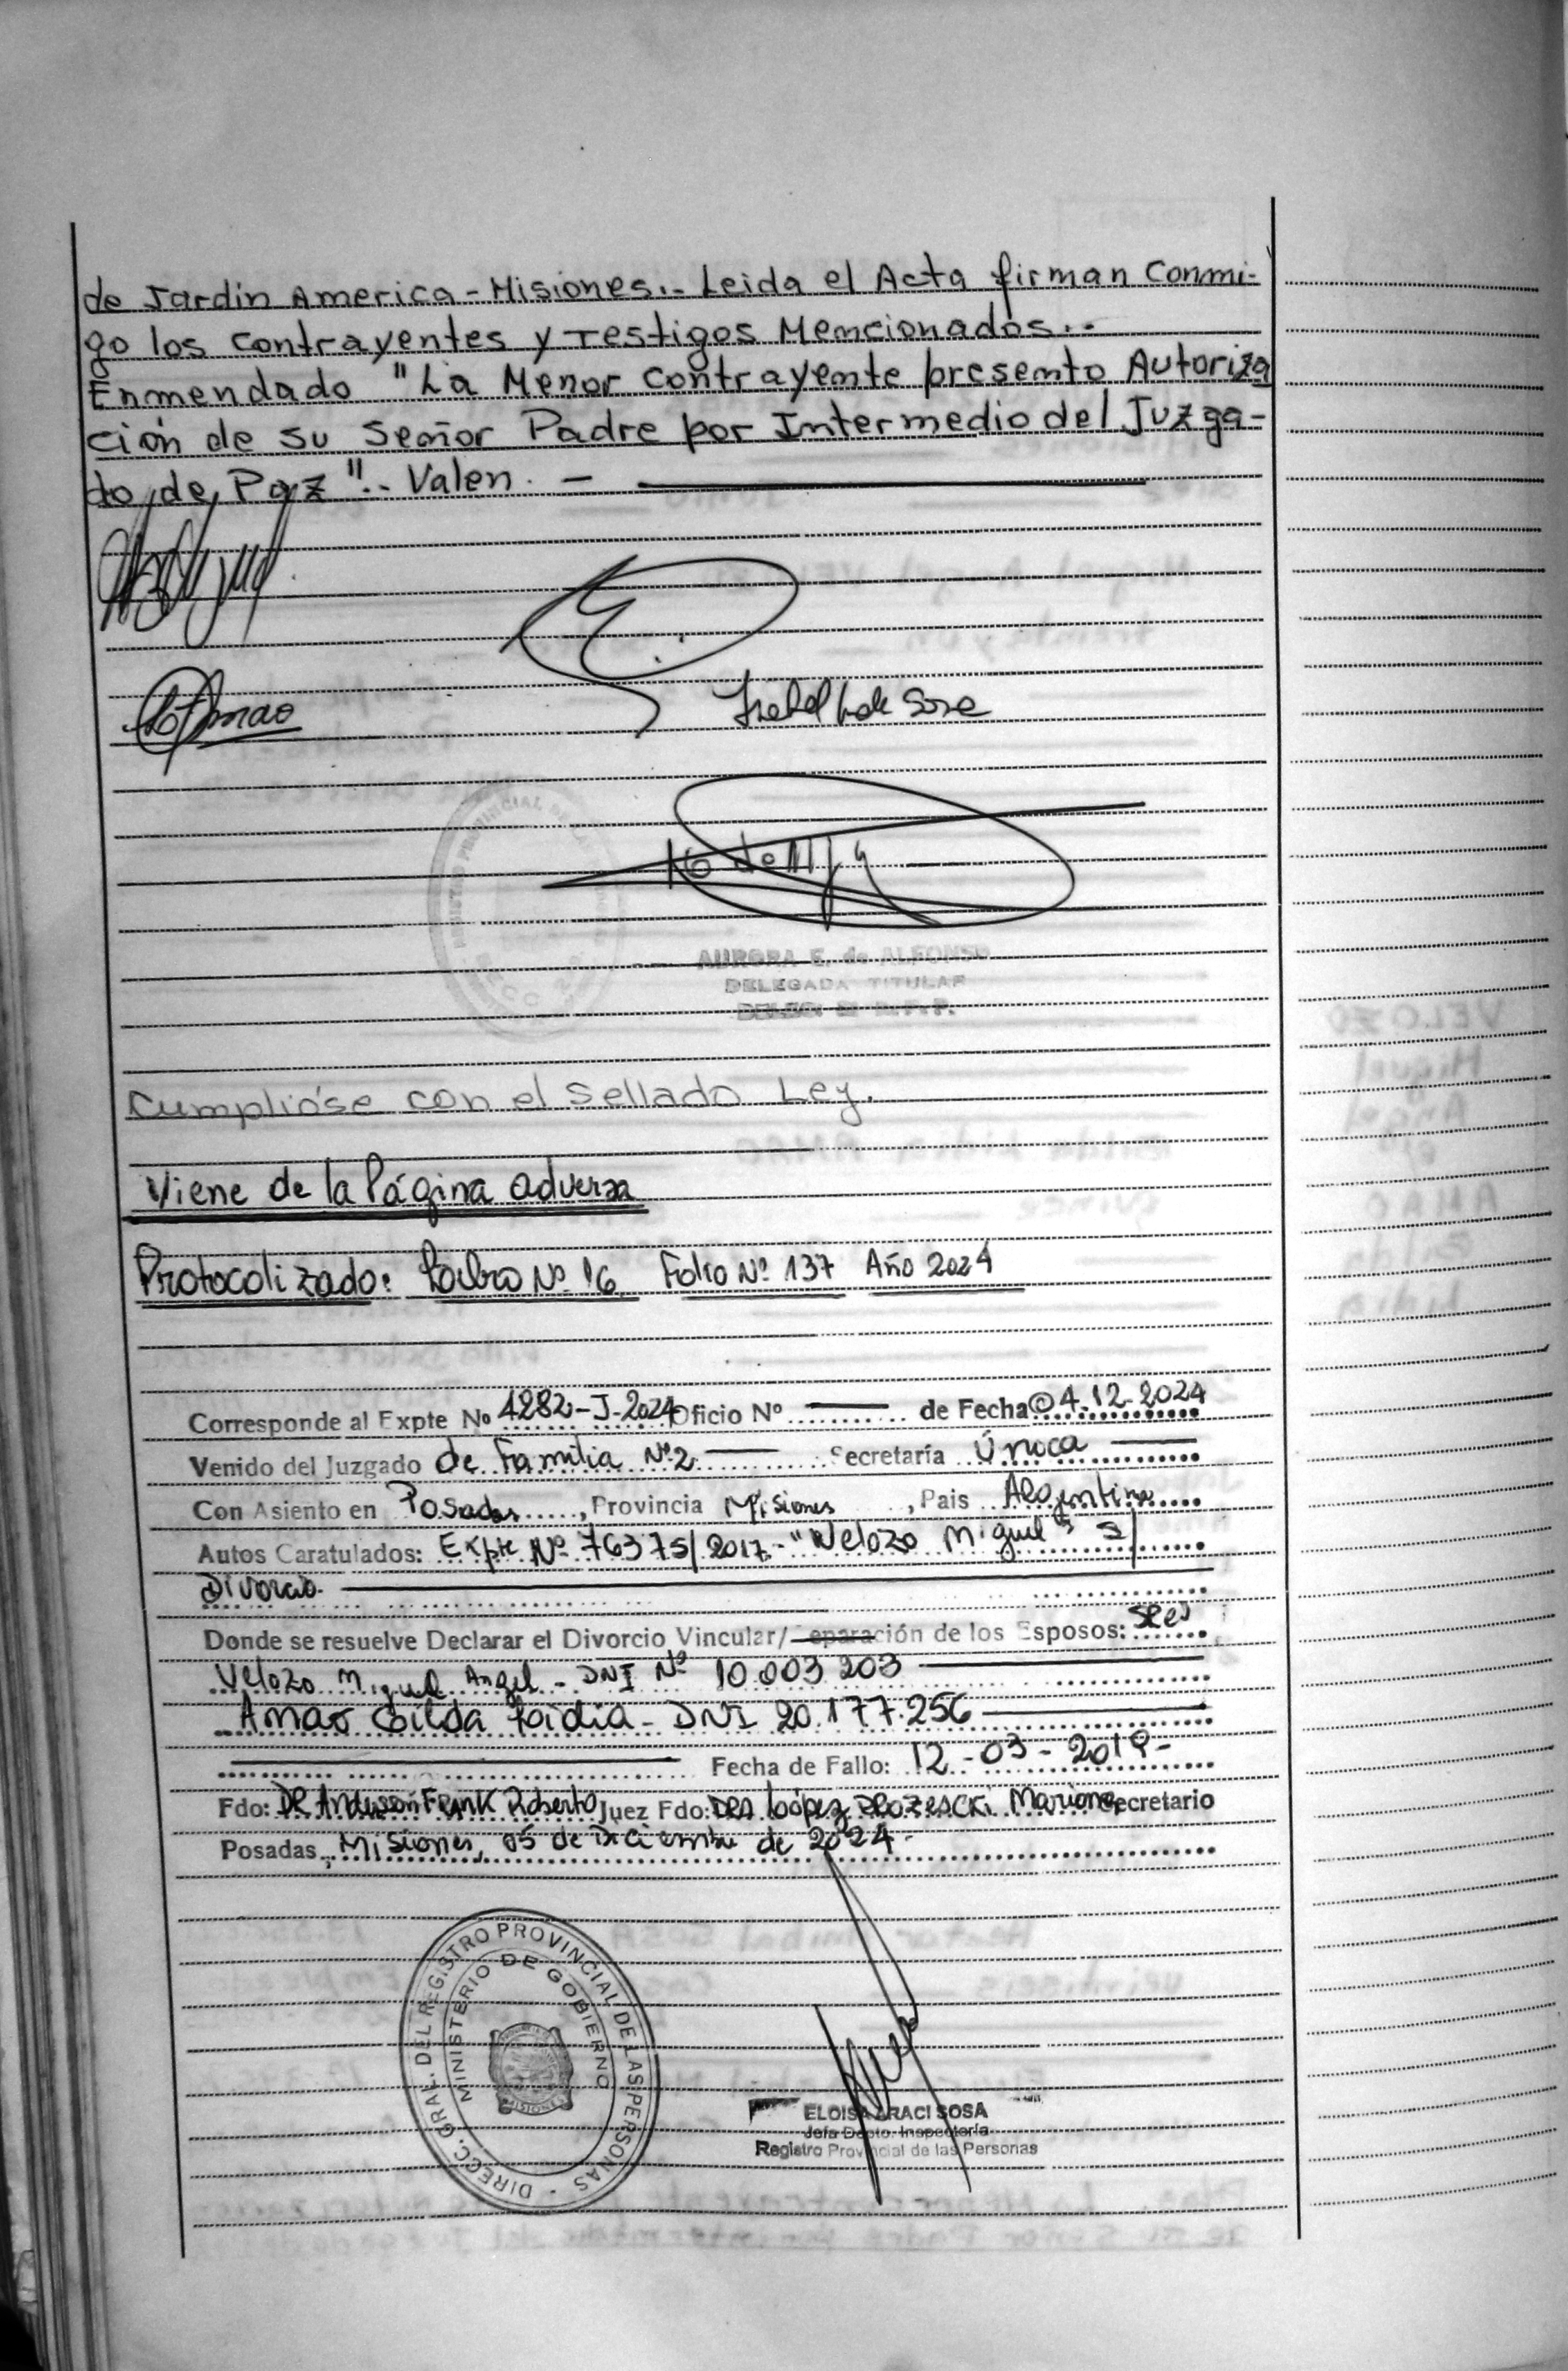 de Jardin America - Misiones.. - Leida el Acta firman Conmi-
go los Contrayentes y Testigos Mencionados..-
Enmendado "La Menor Contrayente presento Autoriza
ción de su Señor Padre por Intermedio del Juzga-
do de Paz".- Valen. —
AURORA E. de ALFONSO
DELEGADA TITULAR
Cumplióse con el Sellado Ley.
Viene de la Página adversa
Protocolizado: Libro Nº 16 Folio Nº 137 Año 2024
Corresponde al Expte Nº 4282-J-2024 Oficio Nº —— de Fecha 04.12.2024
Venido del Juzgado de Familia Nº2 —— Secretaría Única ——
Con Asiento en Posadas, Provincia Misiones, Pais Argentina
Autos Caratulados: Expte Nº 76375/2017.- "Velozo Miguel" s/
Divorcio.
Donde se resuelve Declarar el Divorcio Vincular/Separación de los Esposos:
Velozo Miguel Angel - DNI Nº 10.003.203
Amao Gilda Lidia - DNI 20.177.256
Fecha de Fallo: 12-03-2019-
Fdo: DR Anderson Frank Roberto Juez Fdo: DRA López Mariana Secretario
Posadas, Misiones, 05 de Diciembre de 2024.
DIRECC. GRAL. DEL REGISTRO PROVINCIAL DE LAS PERSONAS -
MINISTERIO DE GOBIERNO
MISIONES
ELOISA ARACI SOSA
Jefa Depto. Inspectoría
Registro Provincial de las Personas